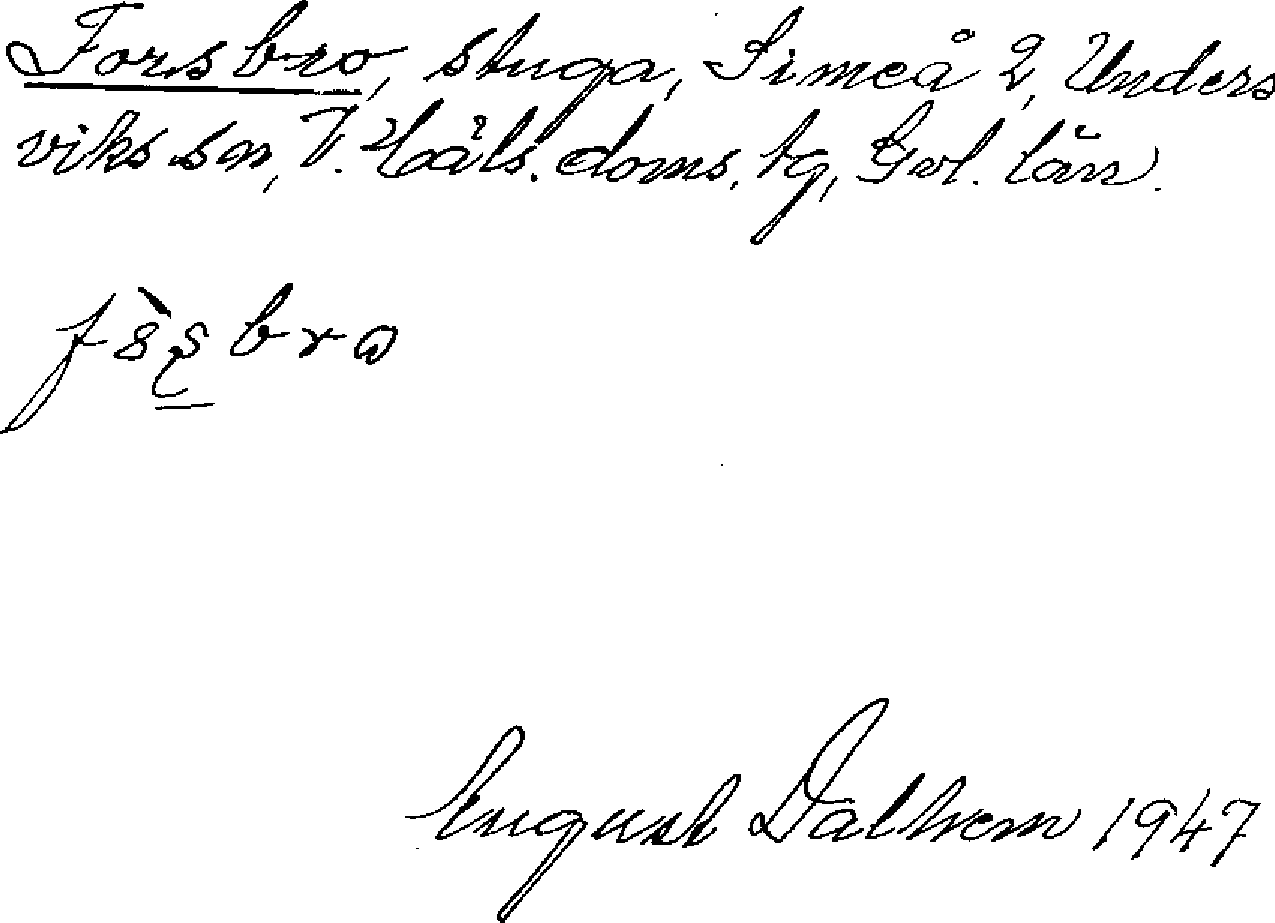 Forsbro, stuga, Simeå 2,Unders
viks sn, V. Häls. doms. tg, Gvl. län.
August Dalhem 1947